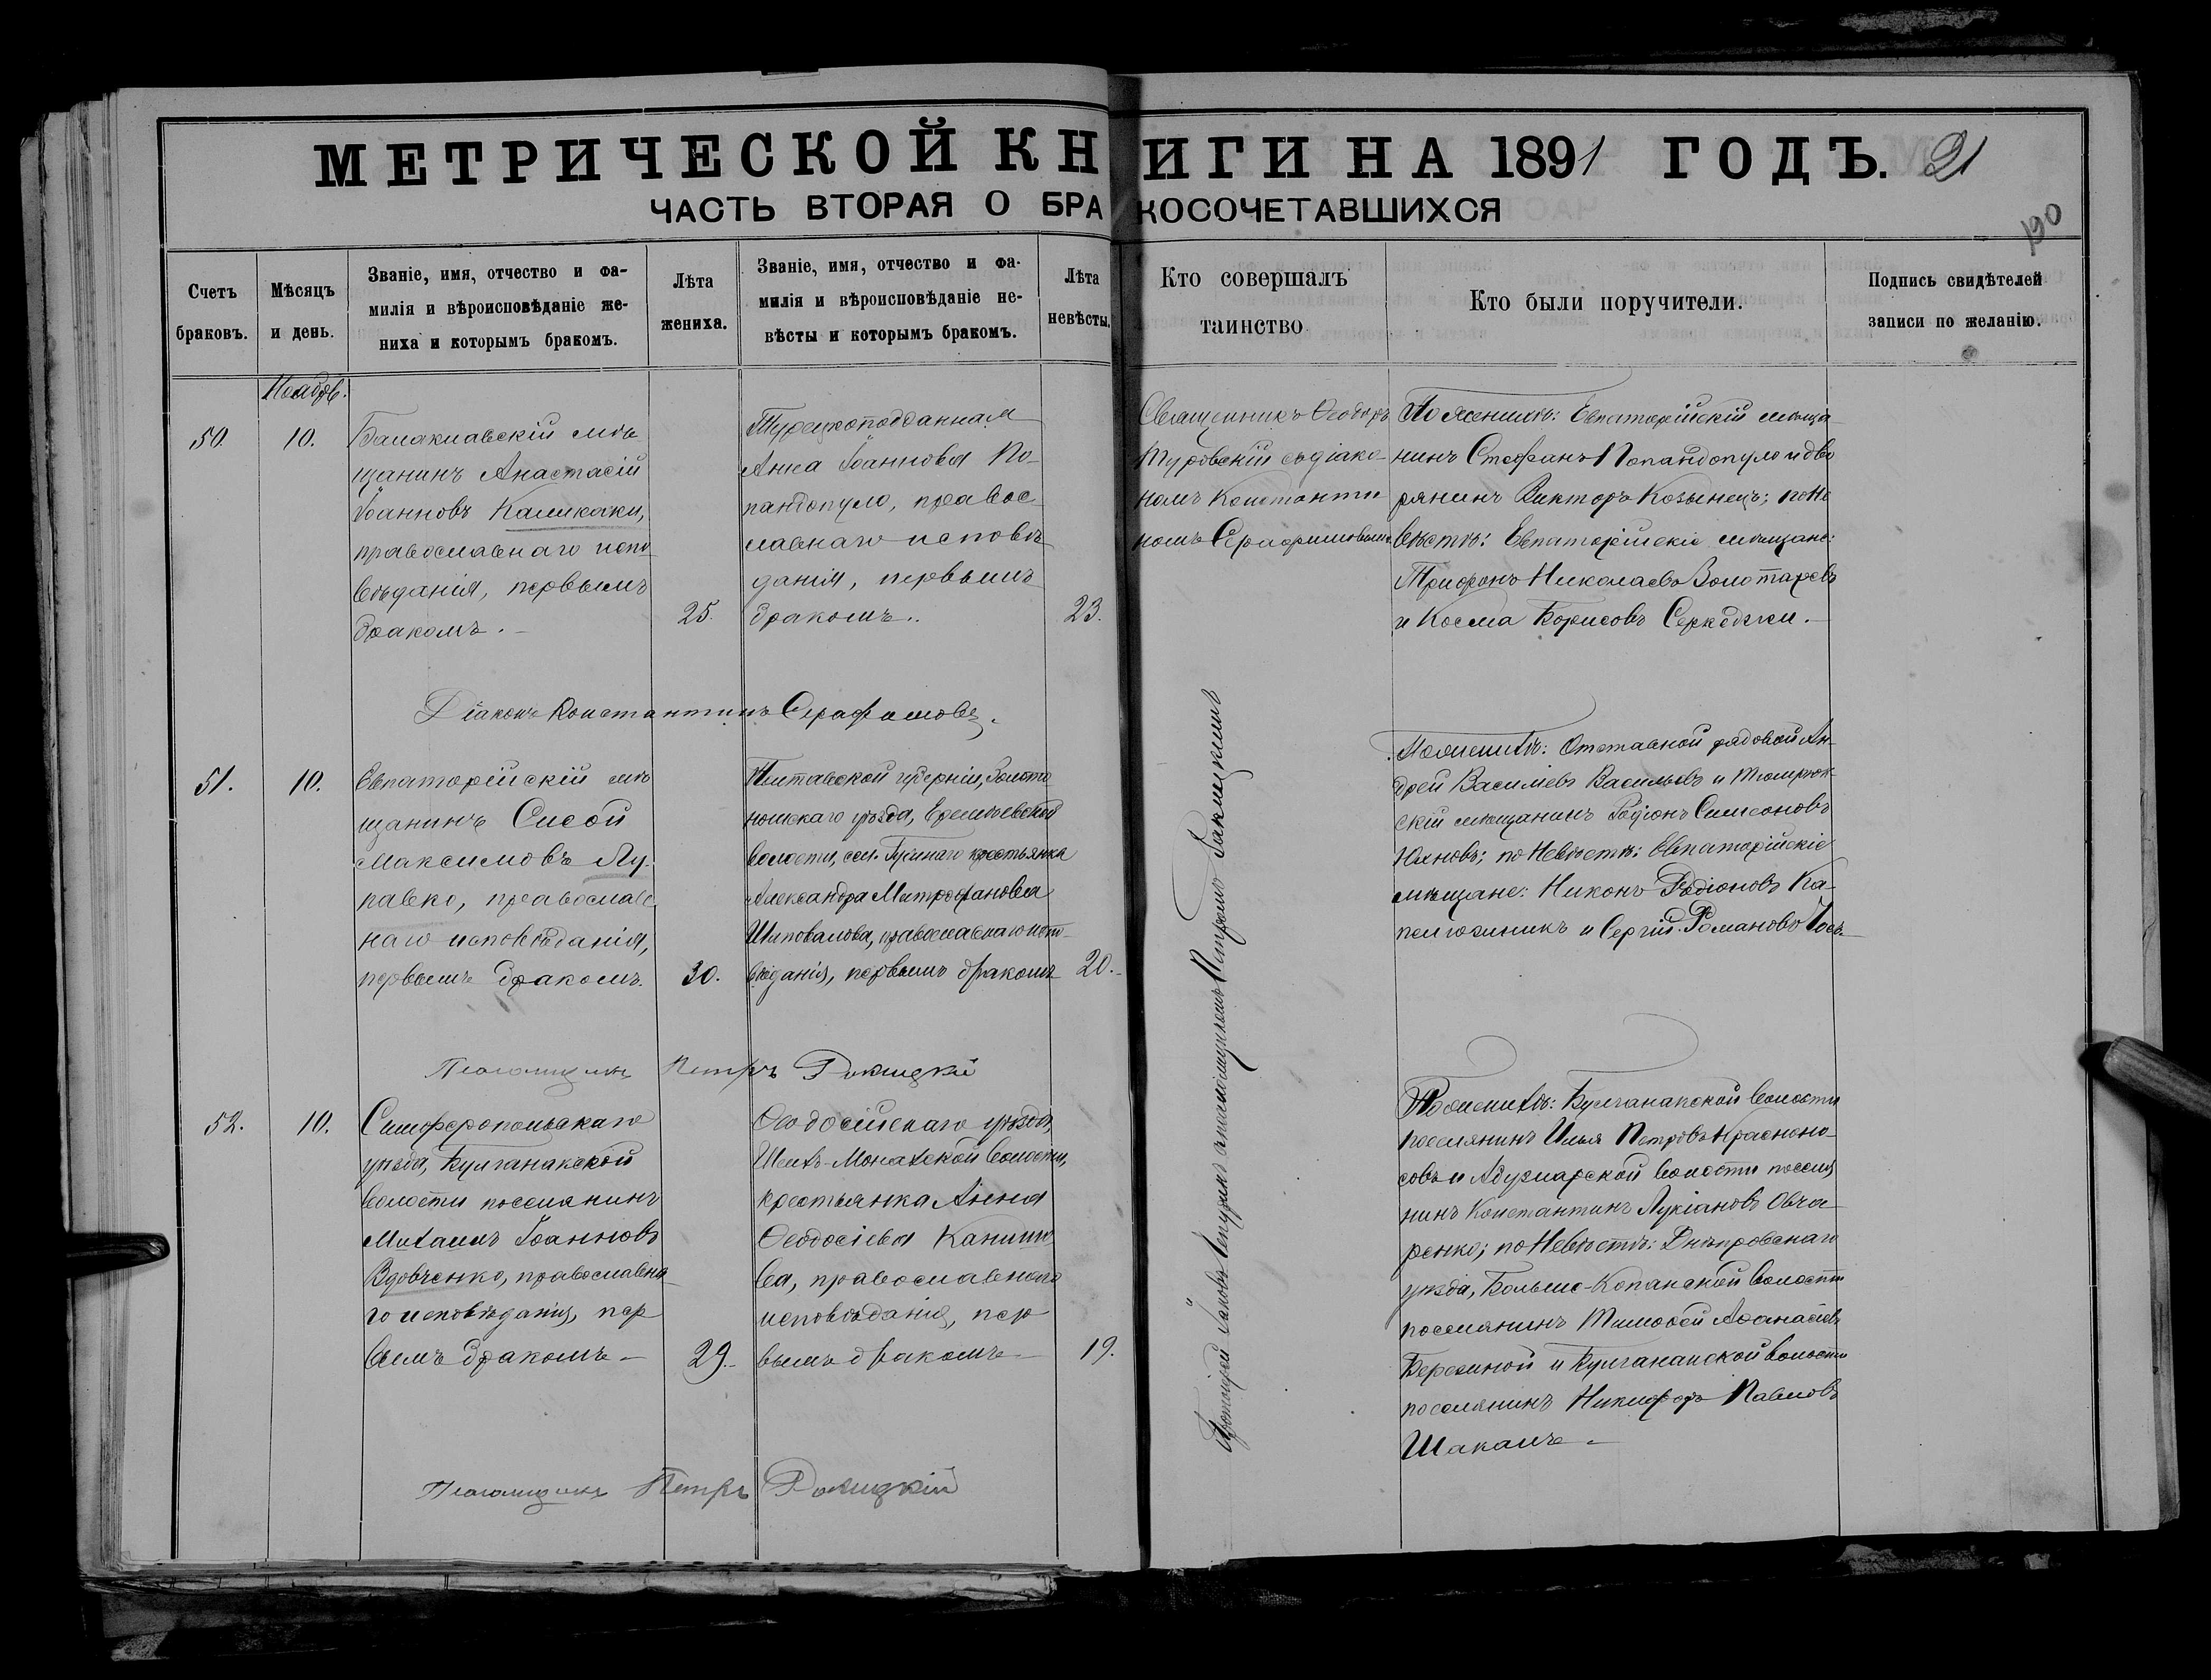 МЕТРИЧЕСКОЙ КНИГИ НА 1891 ГОДЪ. 21
ЧАСТЬ ВТОРАЯ О БРАКОСОЧЕТАВШИХСЯ
190
Счетъ
браковъ.
Мѣсяцъ
и день.
Званіе, имя, отчество и фа-
милія и вѣроисповѣданіе же-
ниха и которымъ бракомъ.
Лѣта
жениха.
Званіе, имя, отчество и фа-
милія и вѣроисповѣданіе не-
вѣсты и которымъ бракомъ.
Лѣта
невѣсты.
Кто совершалъ
таинство
Кто были поручители.
Подпись свидѣтелей
записи по желанію.
Ноябрь.
50.
10.
Балаклавскій мѣ
щанинъ Анастасій
Іоанновъ Каликаки,
православнаго испо
вѣданія, первымъ
бракомъ.
25.
Турецкоподданная
Анна Іоаннова По-
пандопуло, правос
лавнаго исповѣ
данія, первымъ
бракомъ.
23.
Священникъ Ѳеодоръ
Туровскій съ діако-
номъ Константи
номъ Серафимовымъ
По женихѣ: Евпаторійскій мѣща
нинъ Стефанъ Попандопуло и дво
рянинъ Викторъ Козынецъ; по не
вѣстѣ: Евпаторійскіе мѣщане:
Трифонъ Николаевъ Золотаревъ
и Косма Борисовъ Серкеджи.
Діаконъ Константинъ Серафимовъ.
51.
10.
Евпаторійскій мѣ
щанинъ Сисой
Максимовъ Лу-
павко, православ
наго исповѣданія,
первымъ бракомъ.
30.
Полтавской губерніи, Золото
ношскаго уѣзда, Еремѣевской
волости, сел. Гусинаго крестьянка
Александра Митрофанова
Шаповалова, православнаго испо-
вѣданія, первымъ бракомъ
20.
Протоіерей Іаковъ Чепуринъ съ псаломщикомъ Петромъ Ракицкимъ
По женихѣ: Отставной рядовой Ан-
дрей Василіевъ Васильевъ и Темрюк-
скій мѣщанинъ Родіонъ Симеоновъ
Юхновъ; по невѣстѣ: Евпаторійскіе
мѣщане: Никонъ Родіоновъ Ка-
и Сергій Романовъ
Псаломщикъ Петръ Ракицкій
52.
10.
Симферопольскаго
уѣзда, Булганакской
волости поселянинъ
Михаилъ Іоанновъ
Вдовченко, православна
го исповѣданія, пер
вымъ бракомъ
29.
Ѳеодосійскаго уѣзда,
Шейхъ-Монахской волости,
крестьянка Анна
Ѳеодосіева Канини
ва, православнаго
исповѣданія, пер
вымъ бракомъ
19.
По женихѣ: Булганакской волости
поселянинъ Илья Петровъ Красноно-
совъ и Абузларской волости посели
нинъ Константинъ Лукіановъ Овча
ренко; по невѣстѣ: Днѣпровскаго
уѣзда, Больше-Копанской волости
поселянинъ Тимоѳей Аѳанасіевъ
Березиной и Булганакской волости
поселянинъ Никифоръ Павловъ
Шакалъ
Псаломщикъ Петръ Ракицкій